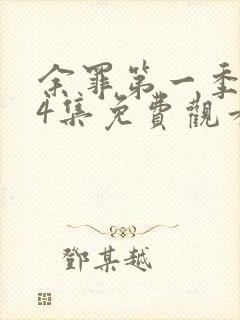 余罪第一季
4集免費觀看
鄧某越